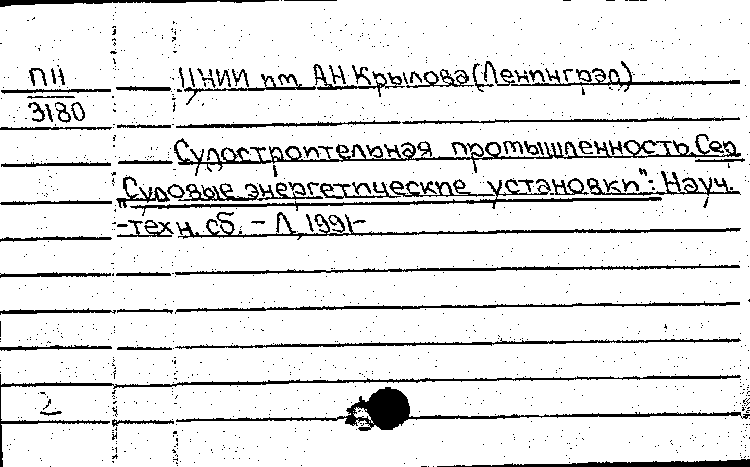 П11
3180
ЦНИИ им. А.Н. Крылова (Ленинград)
Судостроительная промышленность. Сер.
"Судовые энергетические установки": Науч.
-техн. сб. - Л., 1991-
2